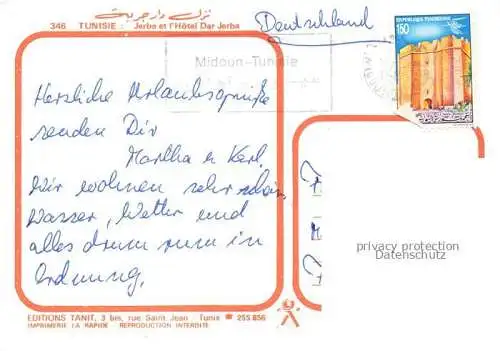 نزل دار جربة
346 TUNISIE : Jerba et l'Hôtel Dar Jerba
Deutschland
150
REPUBLIQUE TUNISIENNE
Midoun-Tunisie
Herzliche Urlaubsgrüße
senden Dir
Martha u Karl.
Wir wohnen sehr schön,
Wasser, Wetter und
alles drum rum in
Ordnung.
privacy protection
Datenschutz
EDITIONS TANIT, 3 bis, rue Saint Jean Tunis ☎ 255 856
IMPRIMERIE LA RAPIDE REPRODUCTION INTERDITE